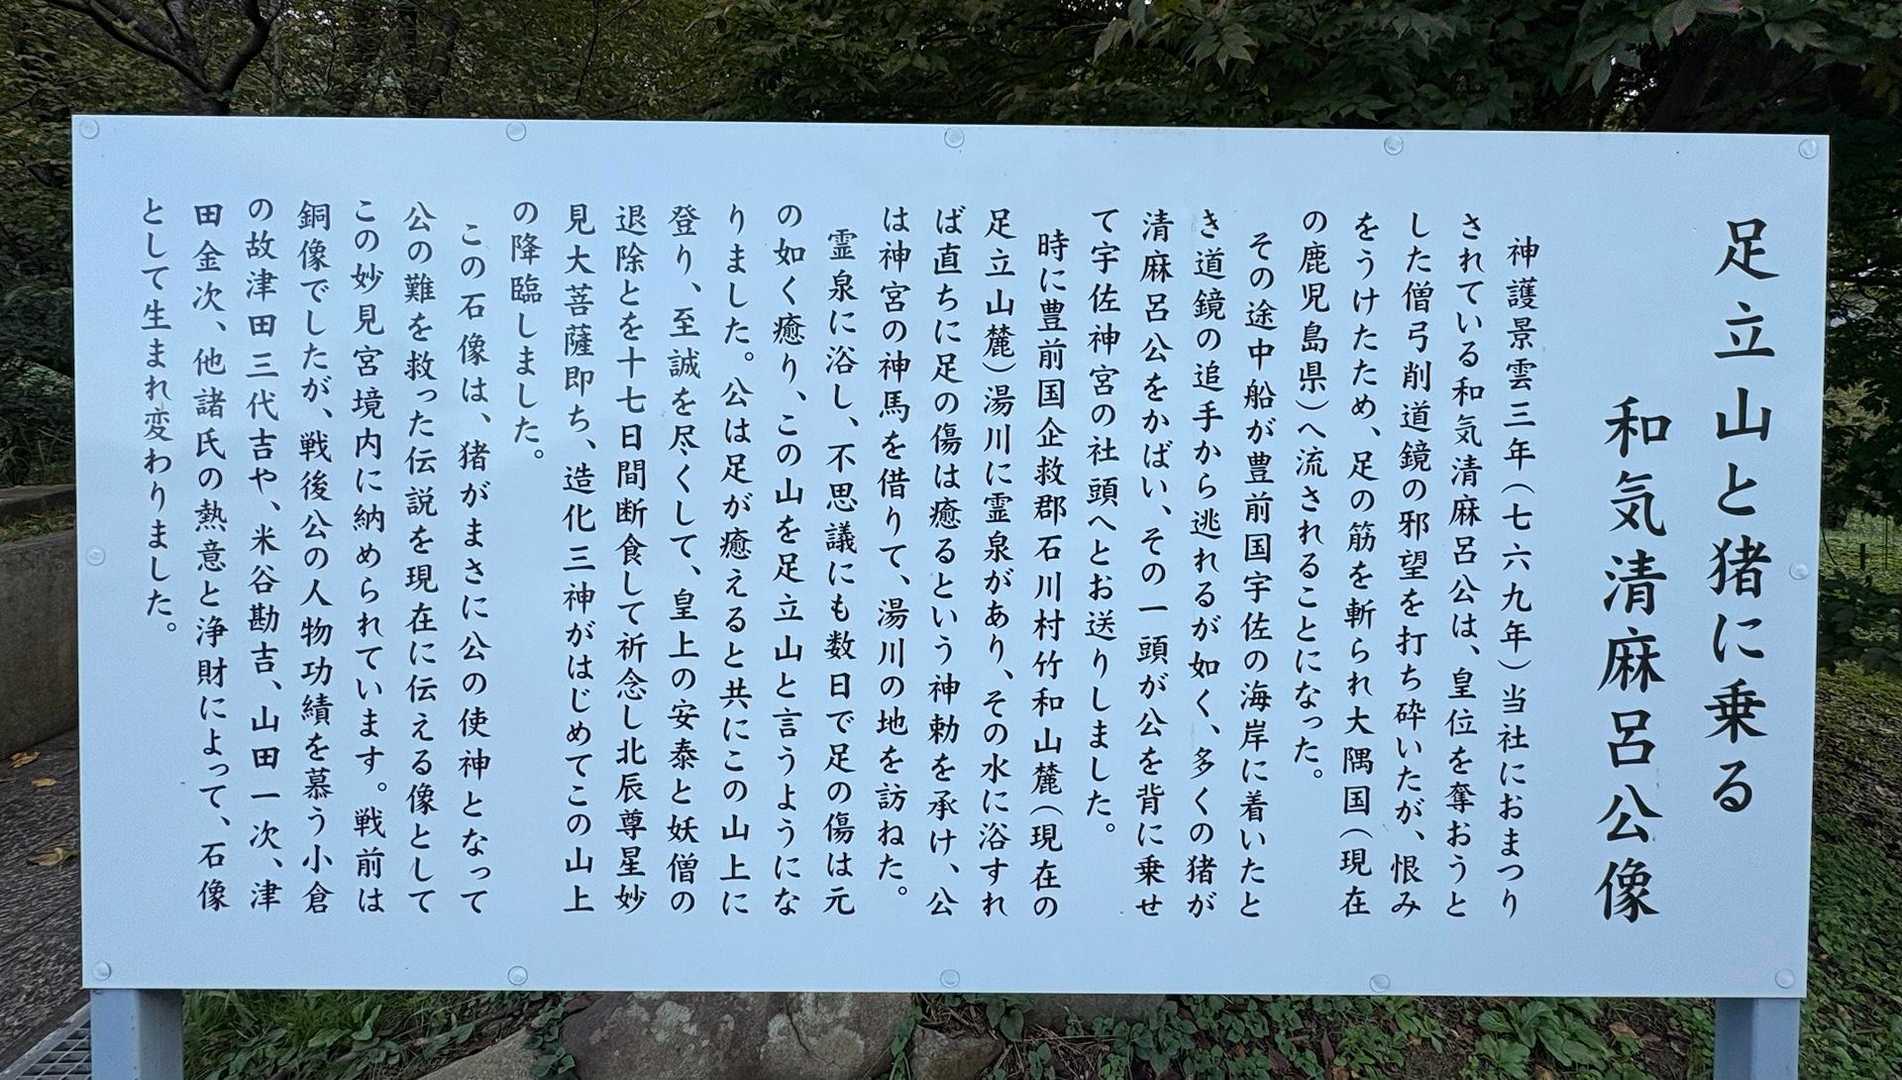 足立山と猪に乗る
和気清麻呂公像
神護景雲三年(七六九年)当社におまつり
されている和気清麻呂公は、皇位を奪おうと
した僧弓削道鏡の邪望を打ち砕いたが、恨み
をうけたため、足の筋を斬られ大隅国(現在
の鹿児島県)へ流されることになった。
その途中船が豊前国宇佐の海岸に着いたと
き道鏡の追手から逃れるが如く、多くの猪が
清麻呂公をかばい、その一頭が公を背に乗せ
て宇佐神宮の社頭へとお送りしました。
時に豊前国企救郡石川村竹和山麓(現在の
足立山麓)湯川に霊泉があり、その水に浴すれ
ば直ちに足の傷は癒るという神勅を承け、公
は神宮の神馬を借りて、湯川の地を訪ねた。
霊泉に浴し、不思議にも数日で足の傷は元
の如く癒り、この山を足立山と言うようにな
りました。公は足が癒えると共にこの山上に
登り、至誠を尽くして、皇上の安泰と妖僧の
退除とを十七日間断食して祈念し北辰尊星妙
見大菩薩即ち、造化三神がはじめてこの山上
の降臨しました。
この石像は、猪がまさに公の使神となって
公の難を救った伝説を現在に伝える像として
この妙見宮境内に納められています。戦前は
銅像でしたが、戦後公の人物功績を慕う小倉
の故津田三代吉や、米谷勘吉、山田一次、津
田金次、他諸氏の熱意と浄財によって、石像
として生まれ変わりました。